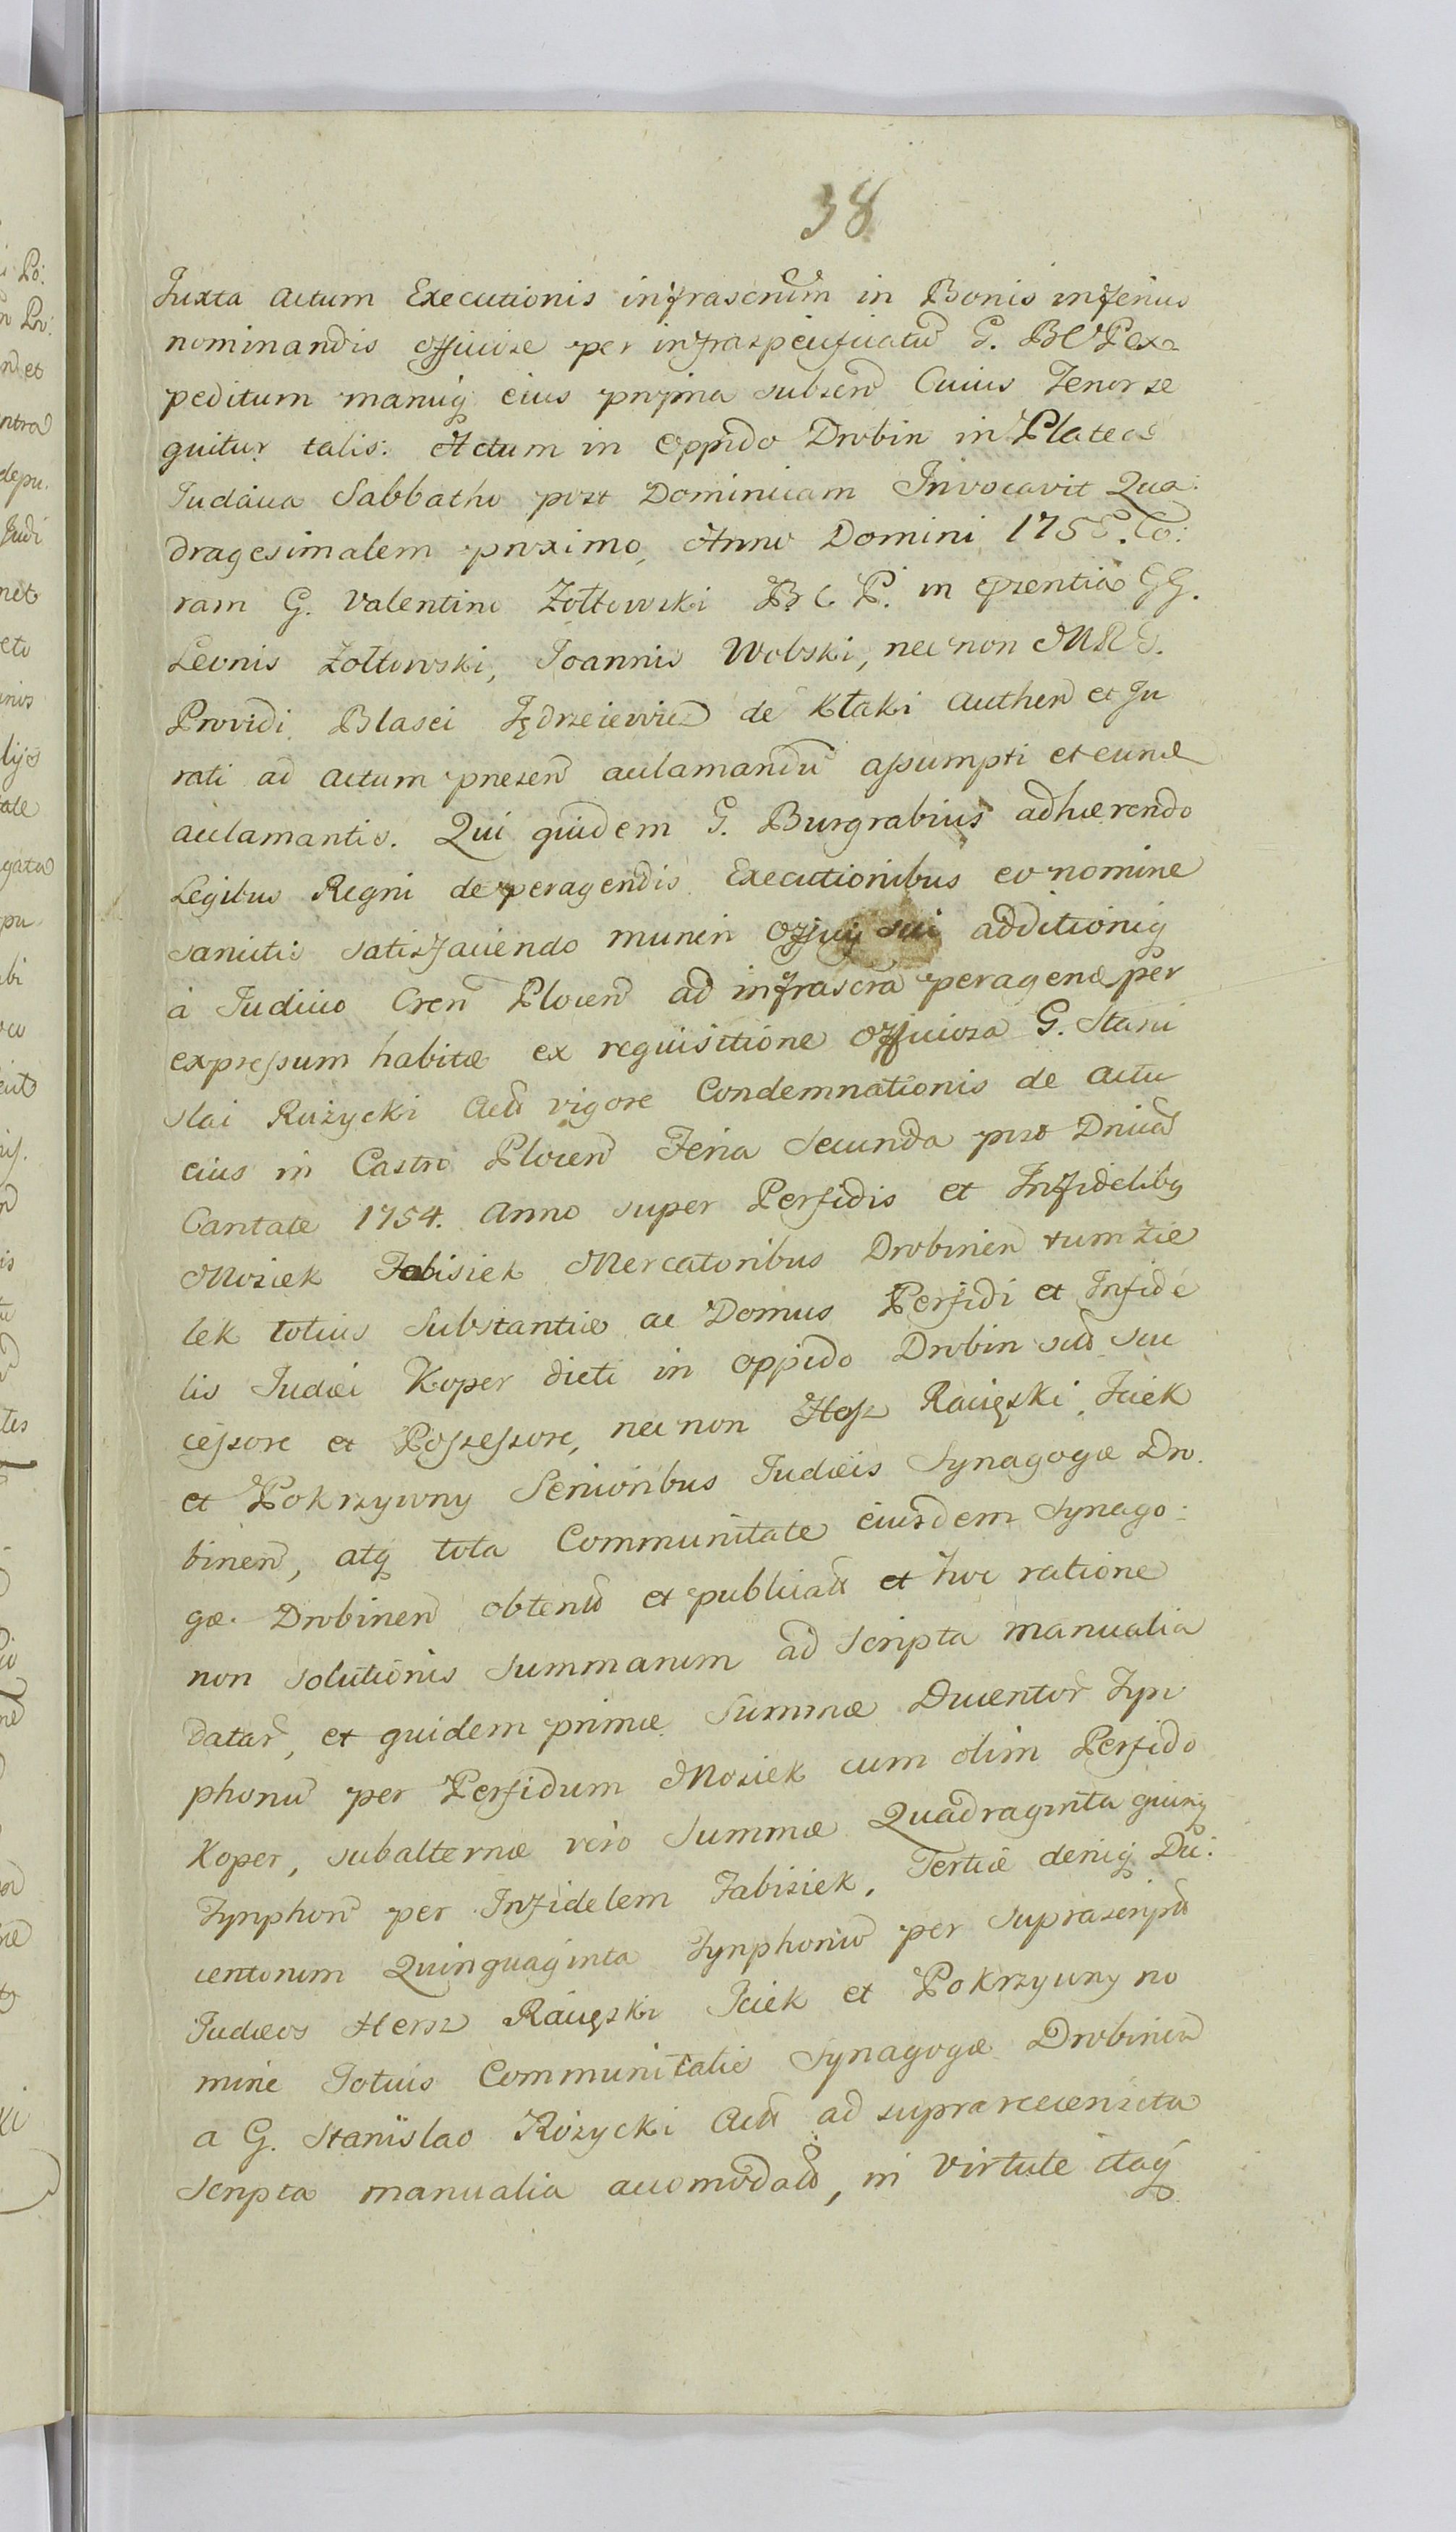 38
Juxta Actum Executionis infrascrum in Bonis inferius
nominandis officiose per infraspecificatũ G. BCP ex=
peditum manuq eius propria subscrñ Cuius Tenor se
quitur talis: Actum in Oppido Drobin in Platea
Judaica Sabbatho post Dominicam Invocavit Qua:
dragesimalem proximo, Anno Domini 175 Co:
ram G. Valentino Zołtowski B C P. in prẽntia GG.
Leonis Zołtowski, Joannis Wolski, nec non
Providi Blasei Jędrzeiewicz de Kłaki authen et Ju
rati ad actum presen acclamandũ assumpti et eund
acclamantis. Qui quidem G. Burgrabius adhærendo
Legibus Regni de peragendis Executionibus eo nomine
sancitis satisfaciendo muneri Officij sui additioniq
à Judicio Cren Plocen ad infrascra peragend per
expressum habitæ ex requisitione officiosa G. Stani
slai Rożycki Actt vigore Condemnationis de actu
eius in Castro Plocen Feria Secunda post Dnicã
Cantate 1754. Anno super Perfidis et Infidelibq
Mosiek Fabisiek Mercatoribus Drobinen tum Zie
lek totius Substantiæ ac Domus Perfidi et Infide
lis Judæi Koper dicti in oppido Drobin sitt Suc
cessore et Possessore, nec non Hersz Racięski, Jcek
et Pokrzywny Senioribus Judæis Synagogæ Dro.
binen, atq tota Communitate eiusdem Synago:
gæ Drobinen obtentt et publicatt et hoc ratione
non solutionis Summarum ad Scripta manualia
datar, et quidem primæ Summæ Ducentor Tyn
phonũ per Perfidum Mosiek cum olim Perfido
Koper, subalternæ vero Summæ Quadraginta quinq
Tynphon per Infidelem Fabisiek, Tertiæ deniq Du:
centorum Quinquaginta Tynphonũ per Suprascriptt
Judæos Hersz Racięski Jcek et Pokrzywny no
mine Totius Communitatis Synagogæ Drobinen
a G. Stanislao Różycki Actt ad suprarecensita
Scripta manualia accomodatt, in virtute itaq